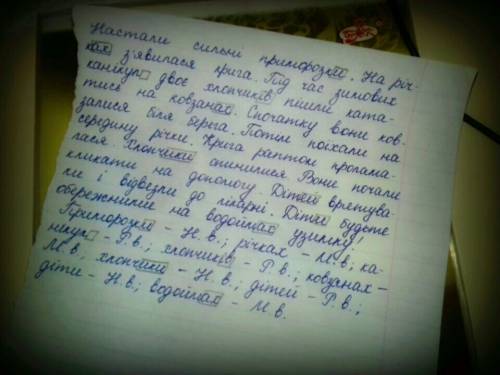 Настали сильні приморозки. На річ-
ках з'явилася крига. Під час зимових
канікул двоє хлопчиків пішли ката-
тись на ковзанах. Спочатку вони ков-
залися біля берега. Потім поїхали на
середину річки. Крига раптом пролама-
лася. Хлопчики опинилися Вони почали
кликати на допомогу. Дітей врятува-
ли і відвезли до лікарні. Діти будьте
обережними на водоймах узимку!
Приморозки – Н.в.; річках – М.в; ка-
нікул – Р.в.; хлопчиків – Р.в.; ковзанах –
М.в.; хлопчики – Н.в.; дітей – Р.в.;
діти – Н.в.; водоймах – М.в.